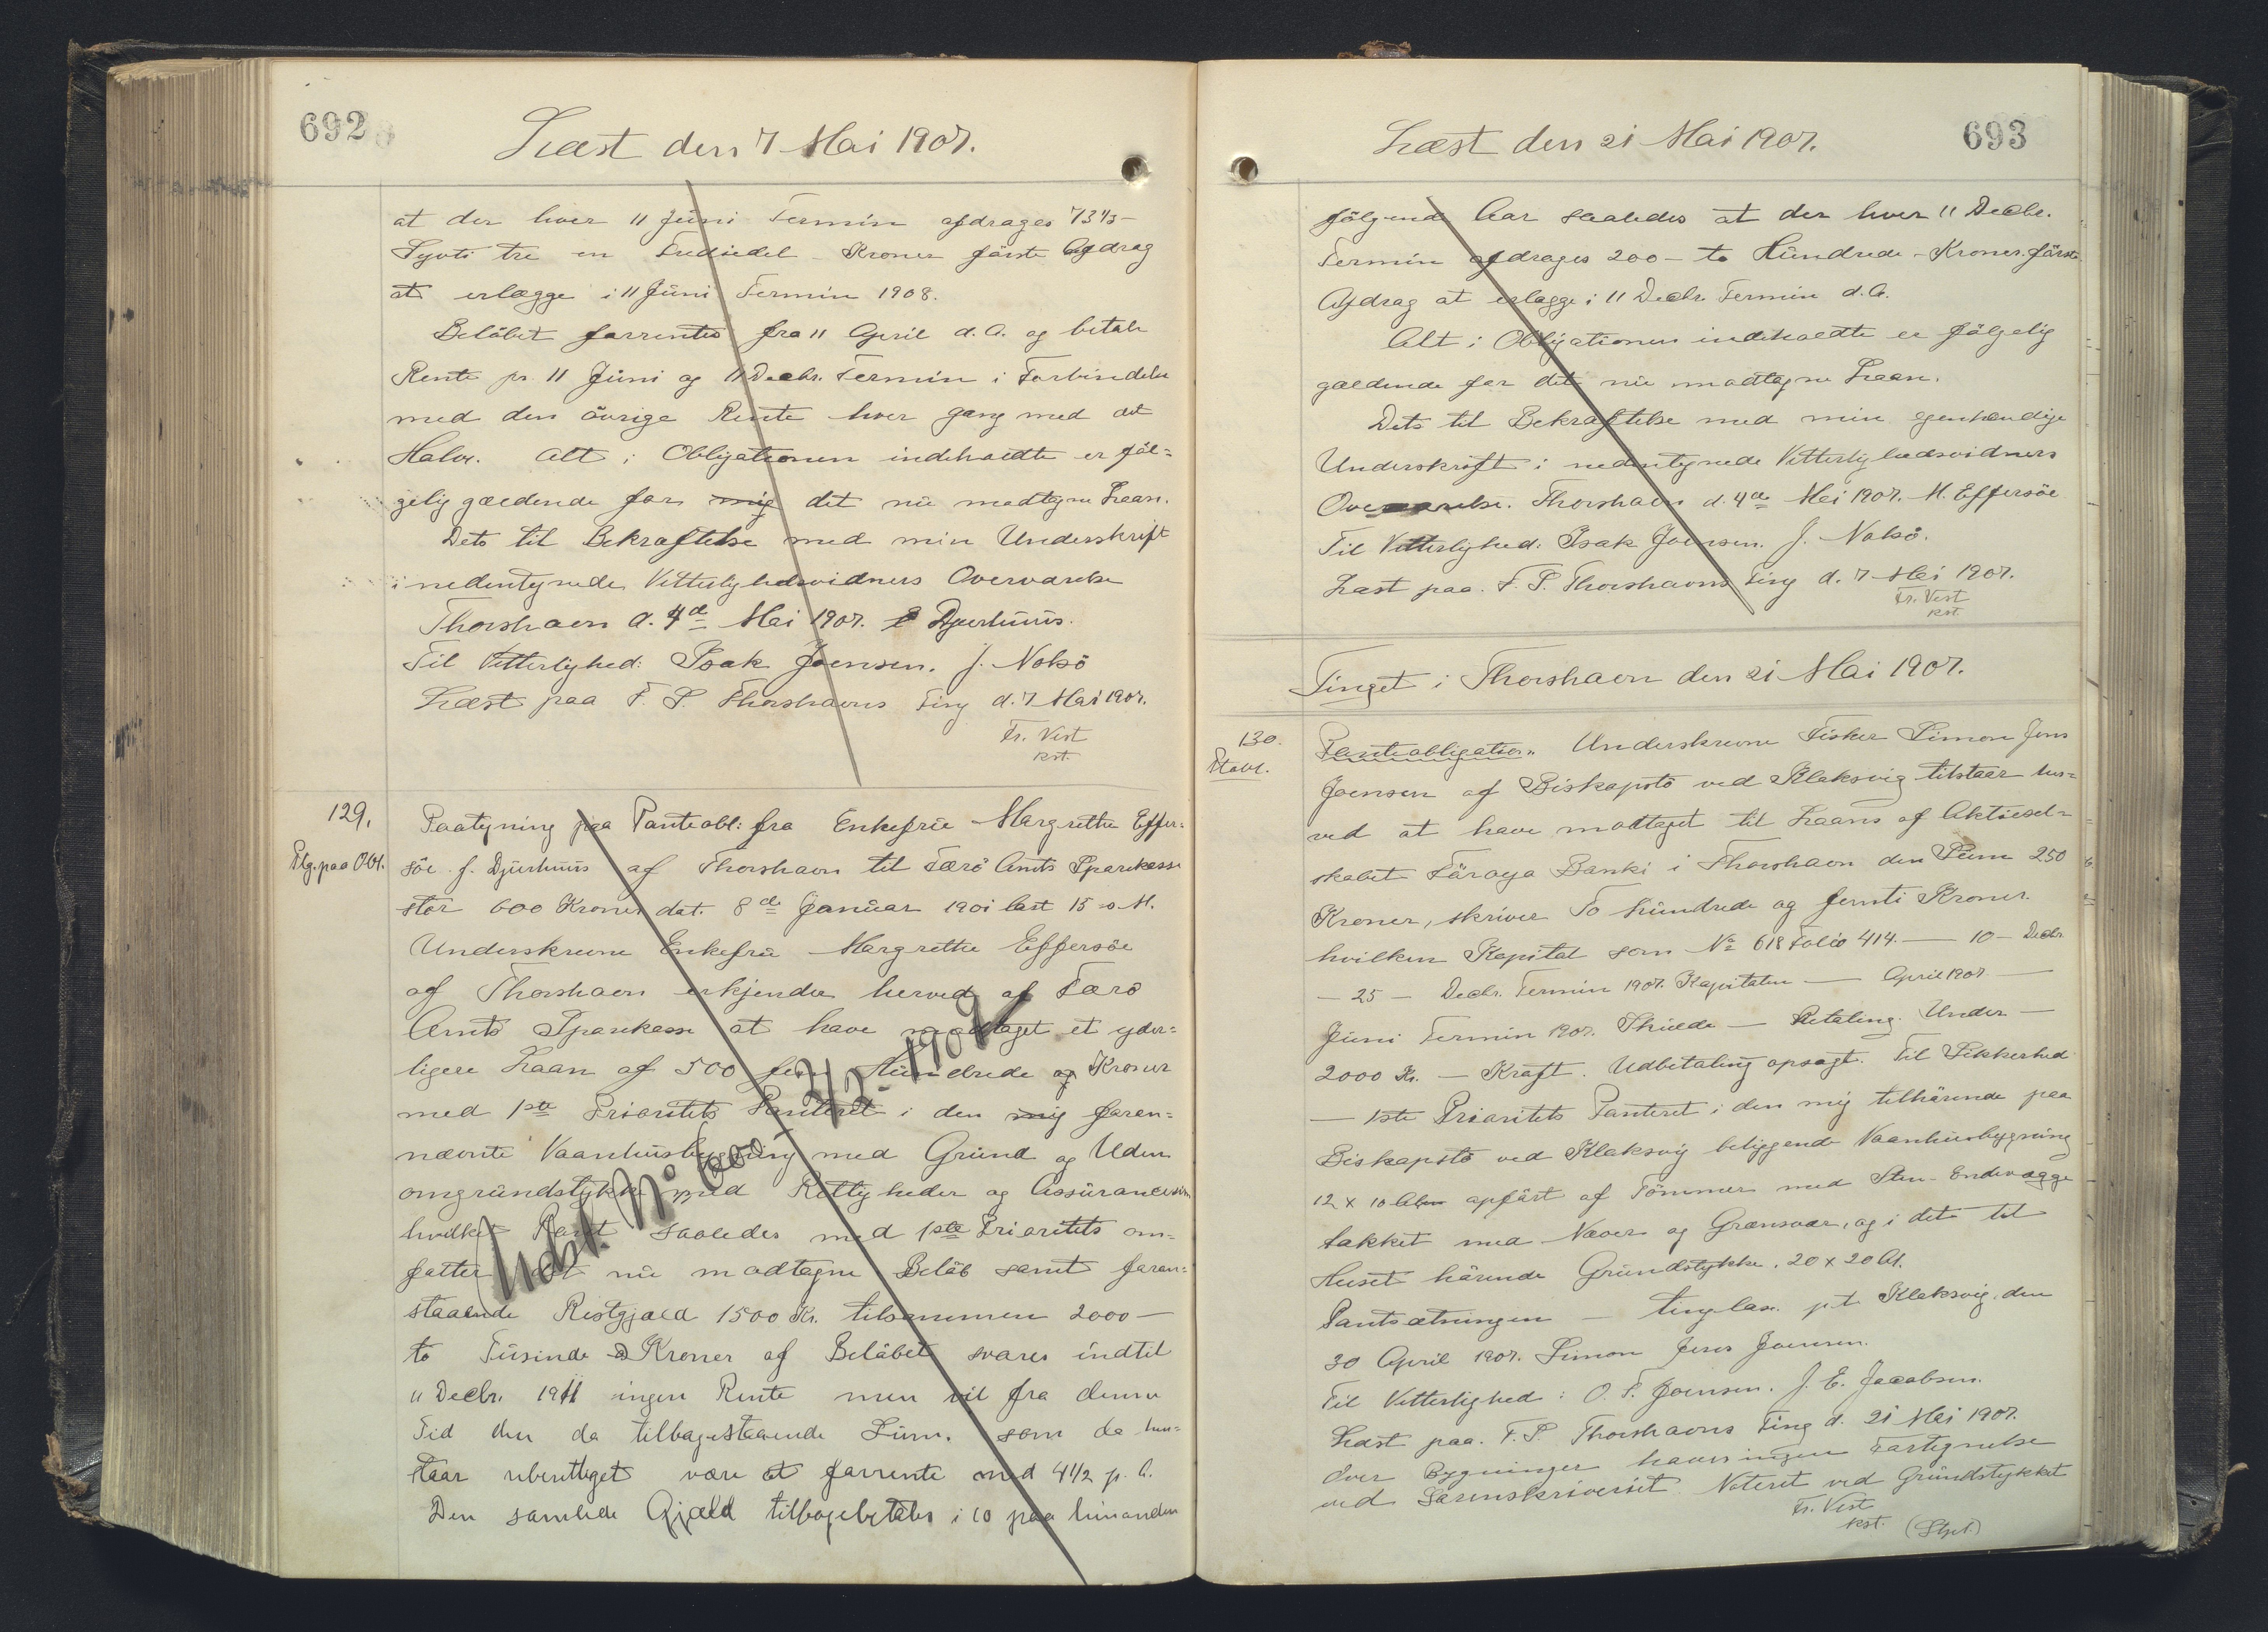 692
Læst den 7 Mai 1907.
at der hver 11 Juni Termin afdrages 73⅓ –
Syvti tre en Trediedel – Kroner förste Afdrag
at erlægge i 11 Juni Termin 1908.
Belöbet forrentes fra 11 April d. A. og betale
Rente pr. 11 Juni og 11 Decbr. Termin i Forbindelse
med den övrige Rente hver gang med det
Halve. Alt i Obligationen indeholdte er föl=
gelig gældende for mig det nu modtagne Laan.
Dets til Bekræftelse med min Underskrift
i nedentegnede Vitterlighedsvidners Overværelse
Thorshavn d. 4de Mai 1907. E Djurhuus.
Til Vitterlighed: Isak Joensen. J. Nolsö
Læst paa F. S Thorshavns Ting d. 7 Mai 1907.
Fr. Vest
kst.
129.
Ptg. paa Obl.
Paategning paa Panteobl: fra Enkefrue Margrethe Effer=
söe f. Djurhuus af Thorshavn til Færö Amts Sparekasse
stor 600 Kroner dat. 8de Januar 1901 læst 15 s. M.
Underskrevne Enkefrue Margrethe Effersöe
af Thorshavn erkjender herved af Færö
Amts Sparekasse at have modtaget et yder=
ligere Laan af 500 fem Hundrede og Kroner
med 1ste Prioritets Panteret i den mig foran=
nævnte Vaanhusbygning med Grund og Uden
omgrundstykke med Rettigheder og Assurancesum
hvilket Pant saaledes med 1ste Prioritets om=
fatter det nu modtagne Belöb samt foran=
staaende Restgjæld 1500 Kr. tilsammen 2000 –
to Tusinde Kroner af Belöbet svares indtil
11 Decbr. 1911 ingen Rente men vil fra denne
Tid den da tilbagestaaende Sum, som da hen=
staar uberettiget være at forrente med 4½ p. C.
Den samlede Gjæld tilbagebetales i 10 paa hinanden
Udsl. No 600 2/2-1909
693
Læst den 21 Mai 1907.
fölgende Aar saaledes at der hver 11 Decbr.
Termin afdrages 200 – to Hundrede – Kroner. förste
Afdrag at erlægge i 11 Decbr. Termin d. A.
Alt i Obligationen indeholdte er fölgelig
gældende for det nu modtagne Laan.
Dets til Bekræftelse med min egenhændige
Underskrift i nedentegnede Vitterlighedsvidners
Overværelse. Thorshavn d. 4de Mai 1907. M. Effersöe
Til Vitterlighed: Isak Joensen. J. Nolsö.
Læst paa F. S. Thorshavns Ting d. 7 Mai 1907.
Fr. Vest
kst.
Tinget i Thorshavn den 21 Mai 1907.
130.
Panteobligation. Underskrevne Fisker Simon Jens
Joensen af Biskopstö ved Klaksvig tilstaar her=
ved at have modtaget til Laans af Aktiesel=
skabet Föroya Banki i Thorshavn den Sum 250
Kroner, skriver To hundrede og femti Kroner.
hvilken Kapital som No 618 Folio 414. — 10 – Decbr.
— 25 — Decbr. Termin 1907. Kapitalen — April 1907 —
Juni Termin 1907. Skulde — Betaling. Under —
2000 Kr. — Kraft. Udbetaling opsagt. Til Sikkerhed
— 1ste Prioritets Panteret i den mig tilhörende paa
Biskopstö ved Klaksvig beliggende Vaanhusbygning
12 x 10 Alen opfört af Tömmer med Sten-Endevægge
takket med Næver og Grønsvær, og i det til
Huset hörende Grundstykke. 20 x 20 Al.
Pantsætningen — tinglæs. p.t. Klaksvig, den
30 April 1907. Simon Jens Joensen.
Til Vitterlighed: O. F. Joensen. J. E. Jacobsen.
Læst paa. F. S. Thorshavns Ting d. 21 Mai 1907.
Over Bygninger haves ingen Fortegnelse
ved Sorenskriveriet. Noteret ved Grundstykket
Fr. Vest
kst.